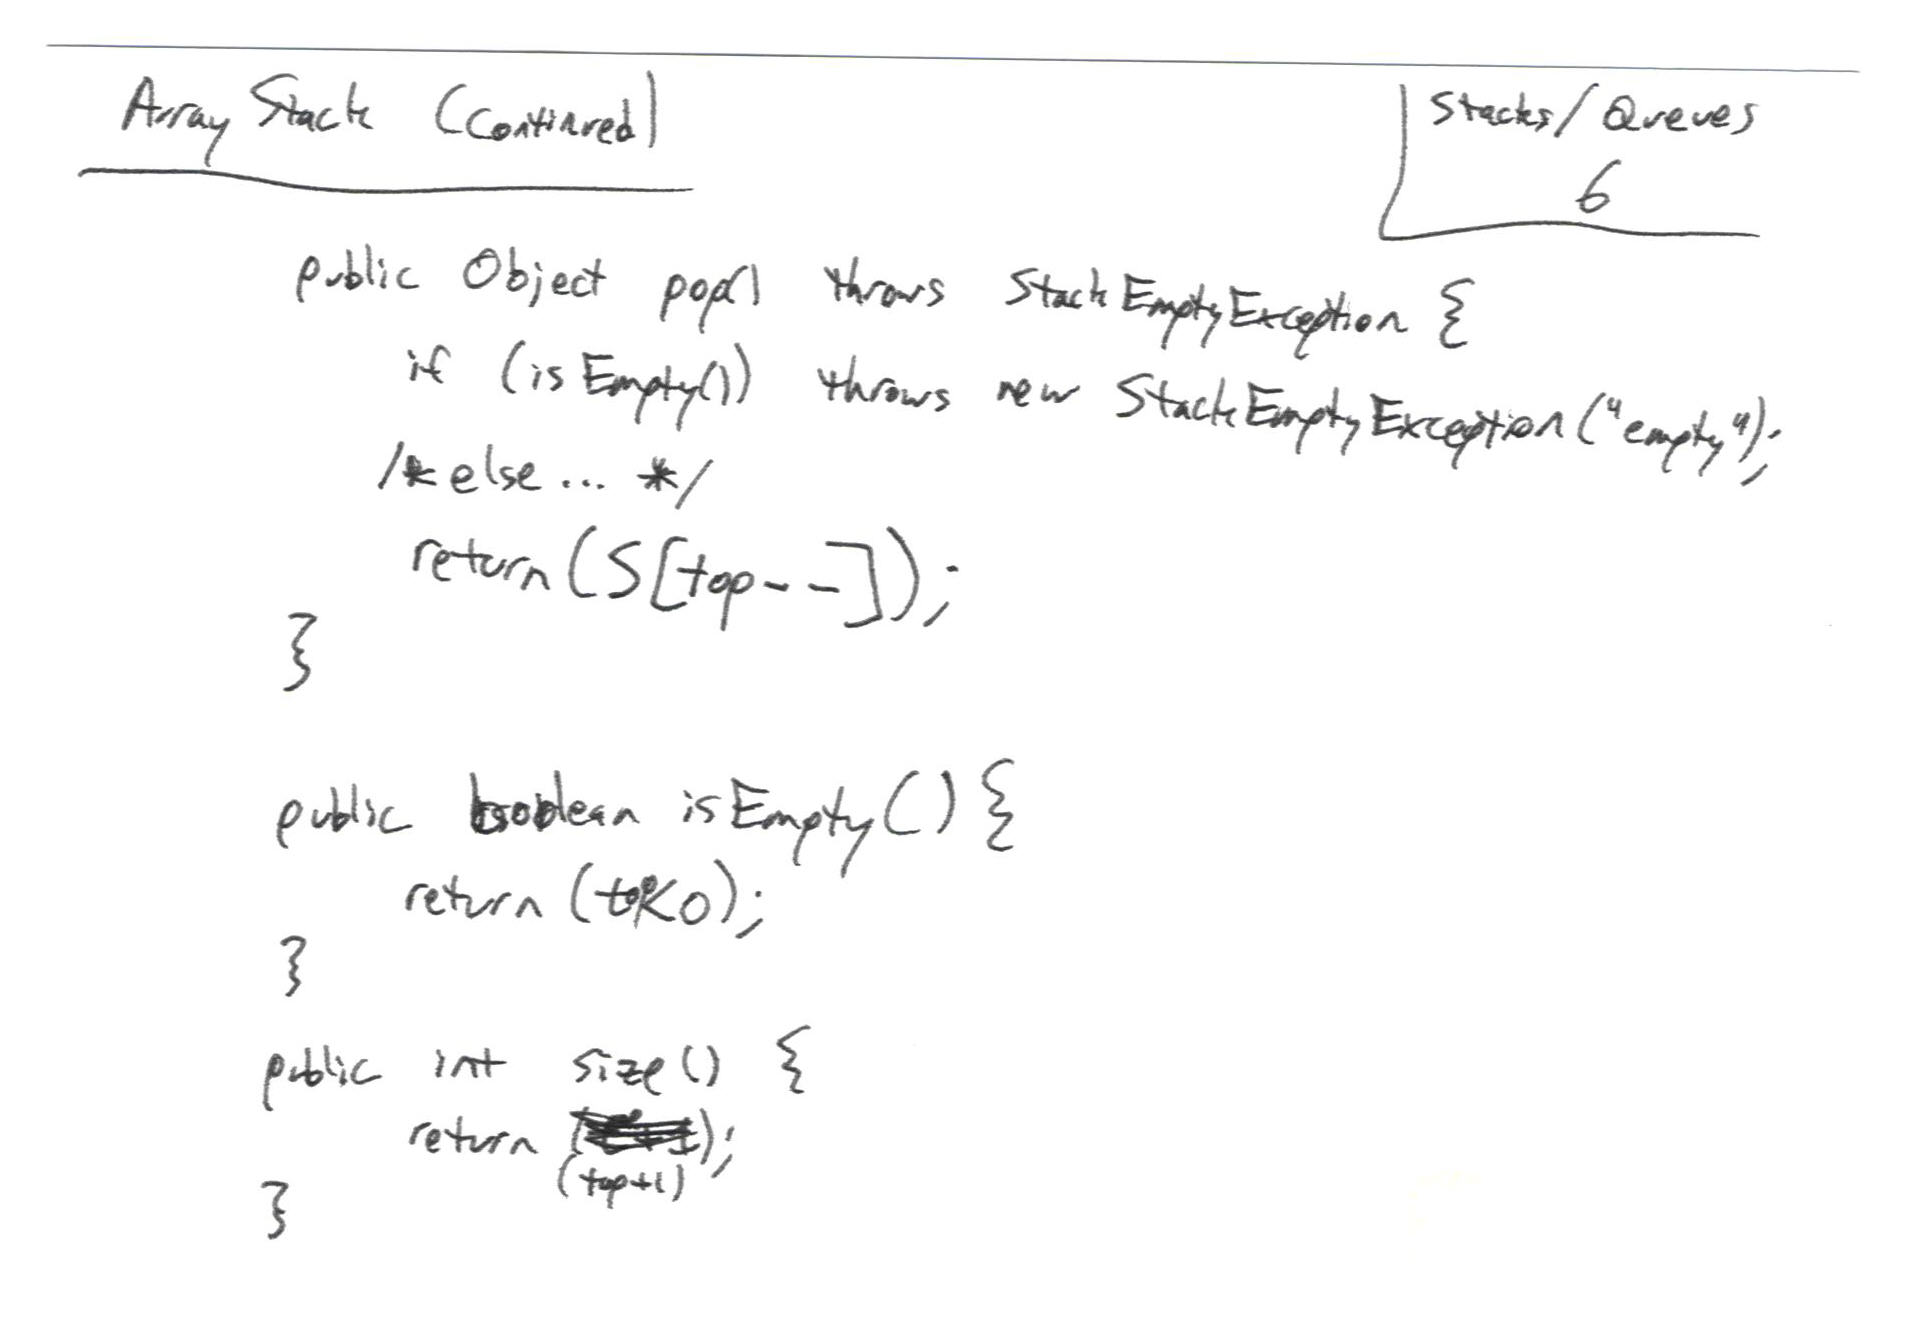 Array Stack (Continued)
Stacks/Queues
6
public Object pop() throws StackEmptyException {
if (isEmpty()) throws new StackEmptyException("empty");
/* else ... */
return (S[top--]);
}
public boolean isEmpty() {
return (top<0);
}
public int size() {
return );
(top+1)
}